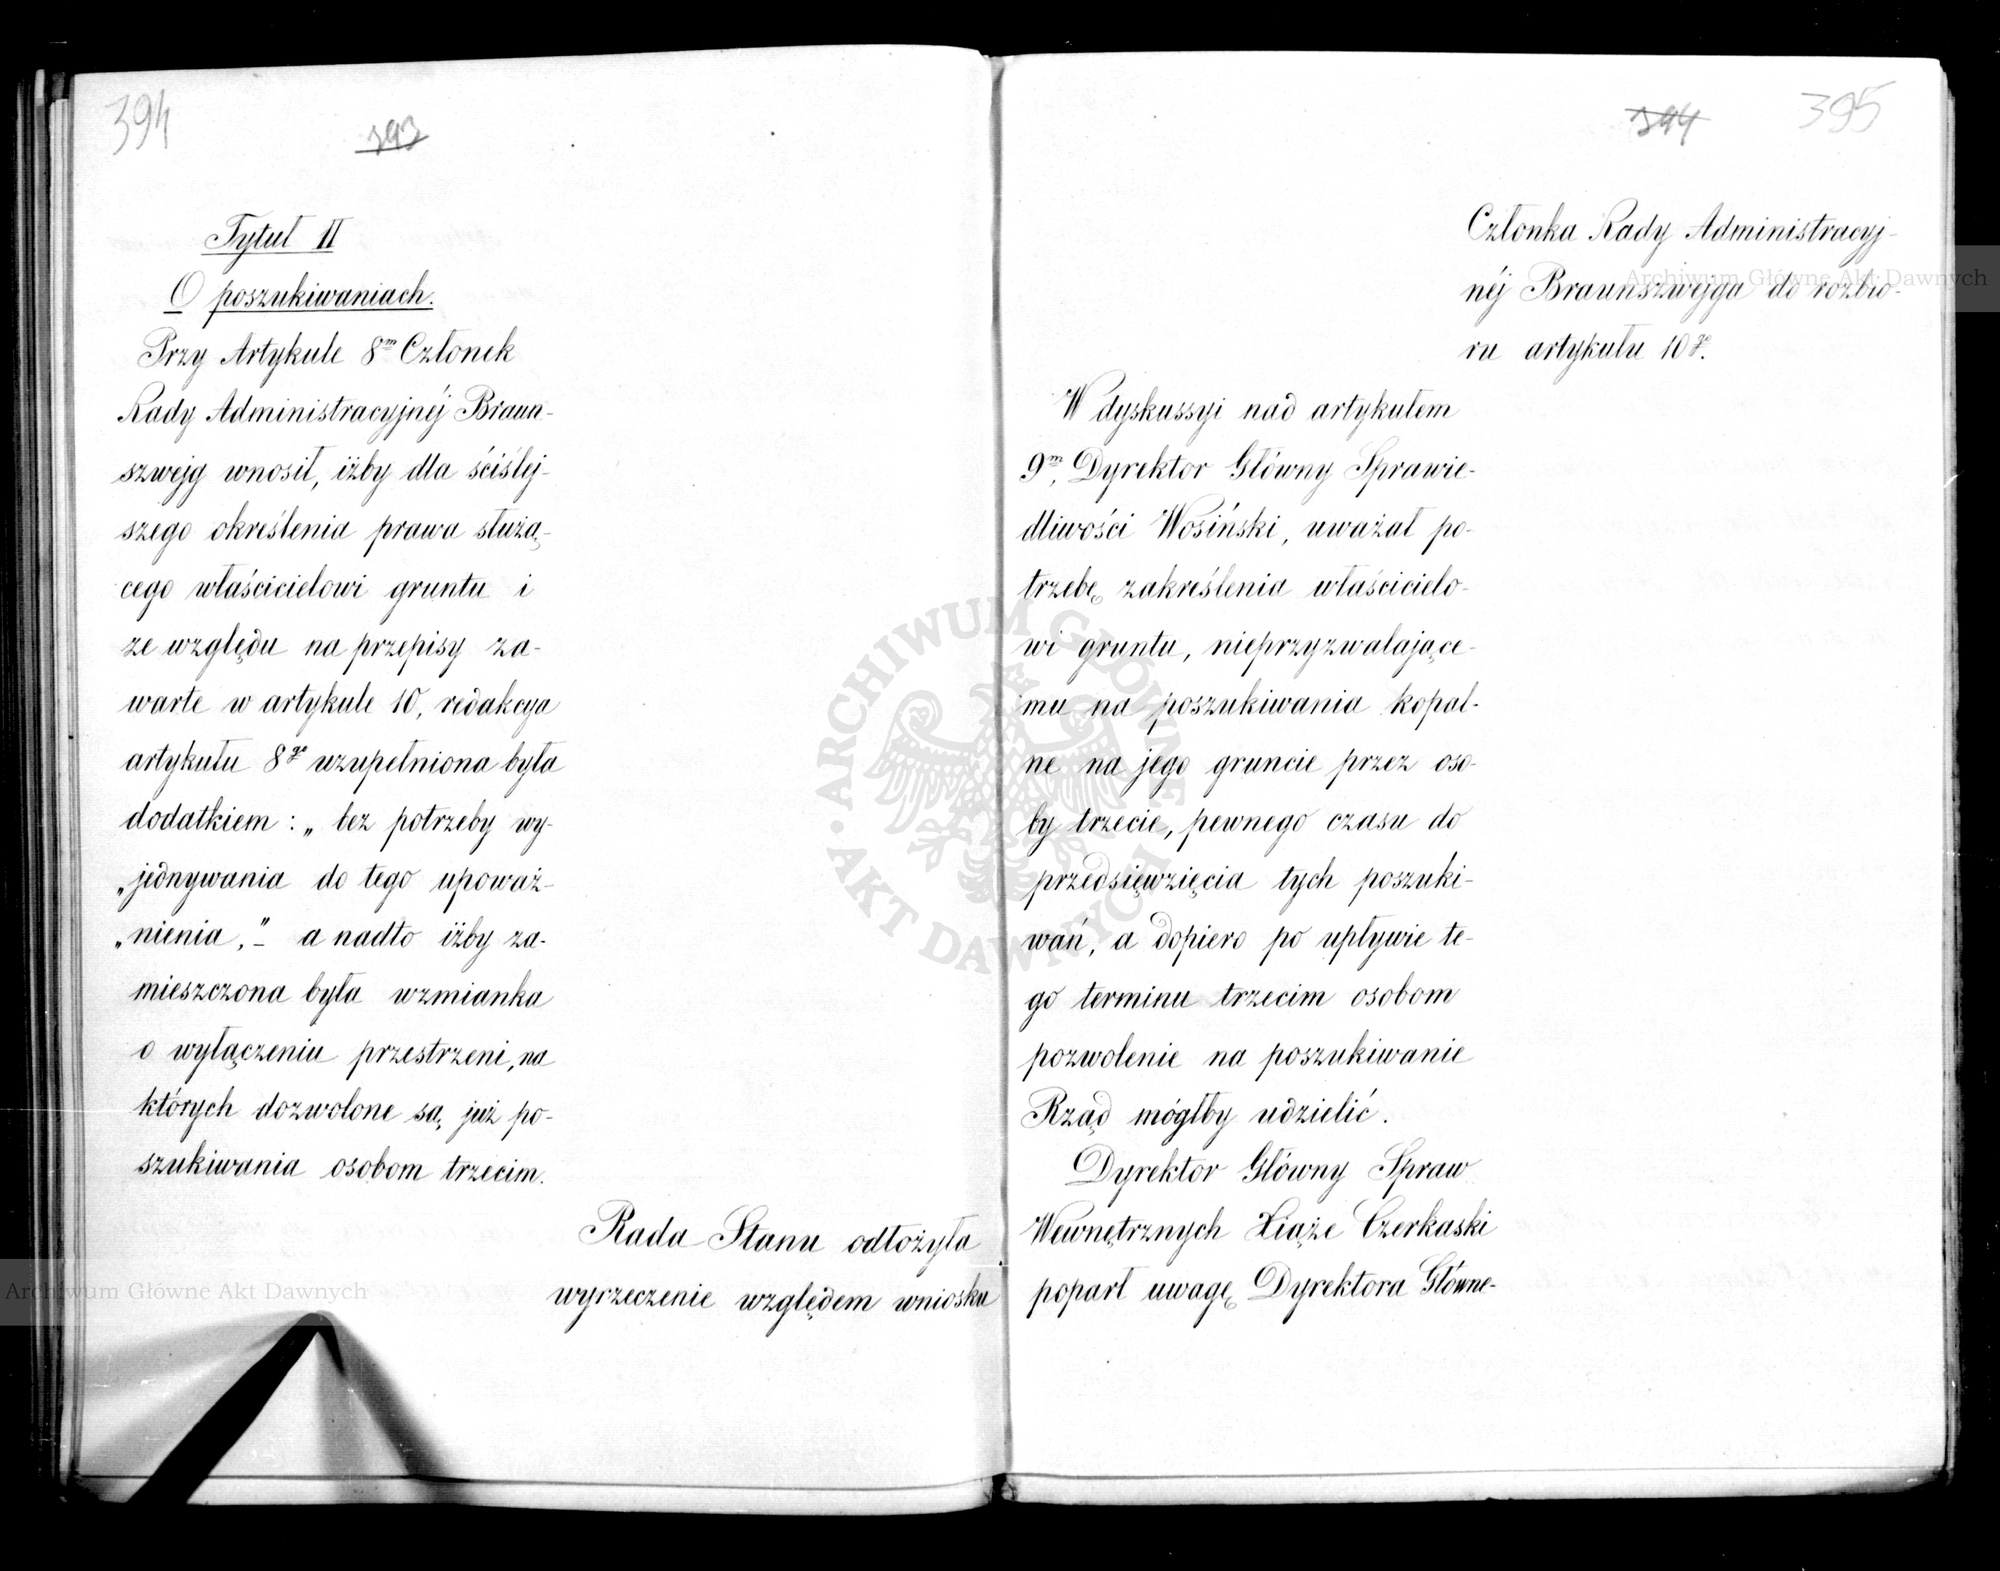 394
393
Tytuł II
O poszukiwaniach.
Przy Artykule 8m Członek
Rady Administracyjnéj Braun-
szwejg wnosił, iżby dla ściślej-
szego określenia prawa służą-
cego właścicielowi gruntu i
ze względu na przepisy za-
warte w artykule 10, redakcya
artykułu 8go uzupełniona była
dodatkiem: „bez potrzeby wy-
„jednywania do tego upoważ-
„nienia,"– a nadto iżby za-
mieszczona była wzmianka
o wyłączeniu przestrzeni, na
których dozwolone są, już po-
szukiwania osobom trzecim.
Rada Stanu odłożyła
wyrzeczenie względem wniosku
394
395
Członka Rady Administracyj-
néj Braunszwejga do rozbio-
ru artykułu 10go.
W dyskussyi nad artykułem
9m, Dyrektor Główny Sprawie-
dliwości Wosiński, uważał po-
trzebę zakreślenia właścicielo-
wi gruntu, nieprzyzwalające-
mu na poszukiwania kopal-
ne na jego gruncie przez oso-
by trzecie, pewnego czasu do
przedsięwzięcia tych poszuki-
wań, a dopiero po upływie te-
go terminu trzecim osobom
pozwolenie na poszukiwanie
Rząd mógłby udzielić.
Dyrektor Główny Spraw
Wewnętrznych Xiąże Czerkaski
poparł uwagę Dyrektora Główne-
ARCHIWUM GŁÓWNE
AKT DAWNYCH
Archiwum Główne Akt Dawnych
Archiwum Główne Akt Dawnych